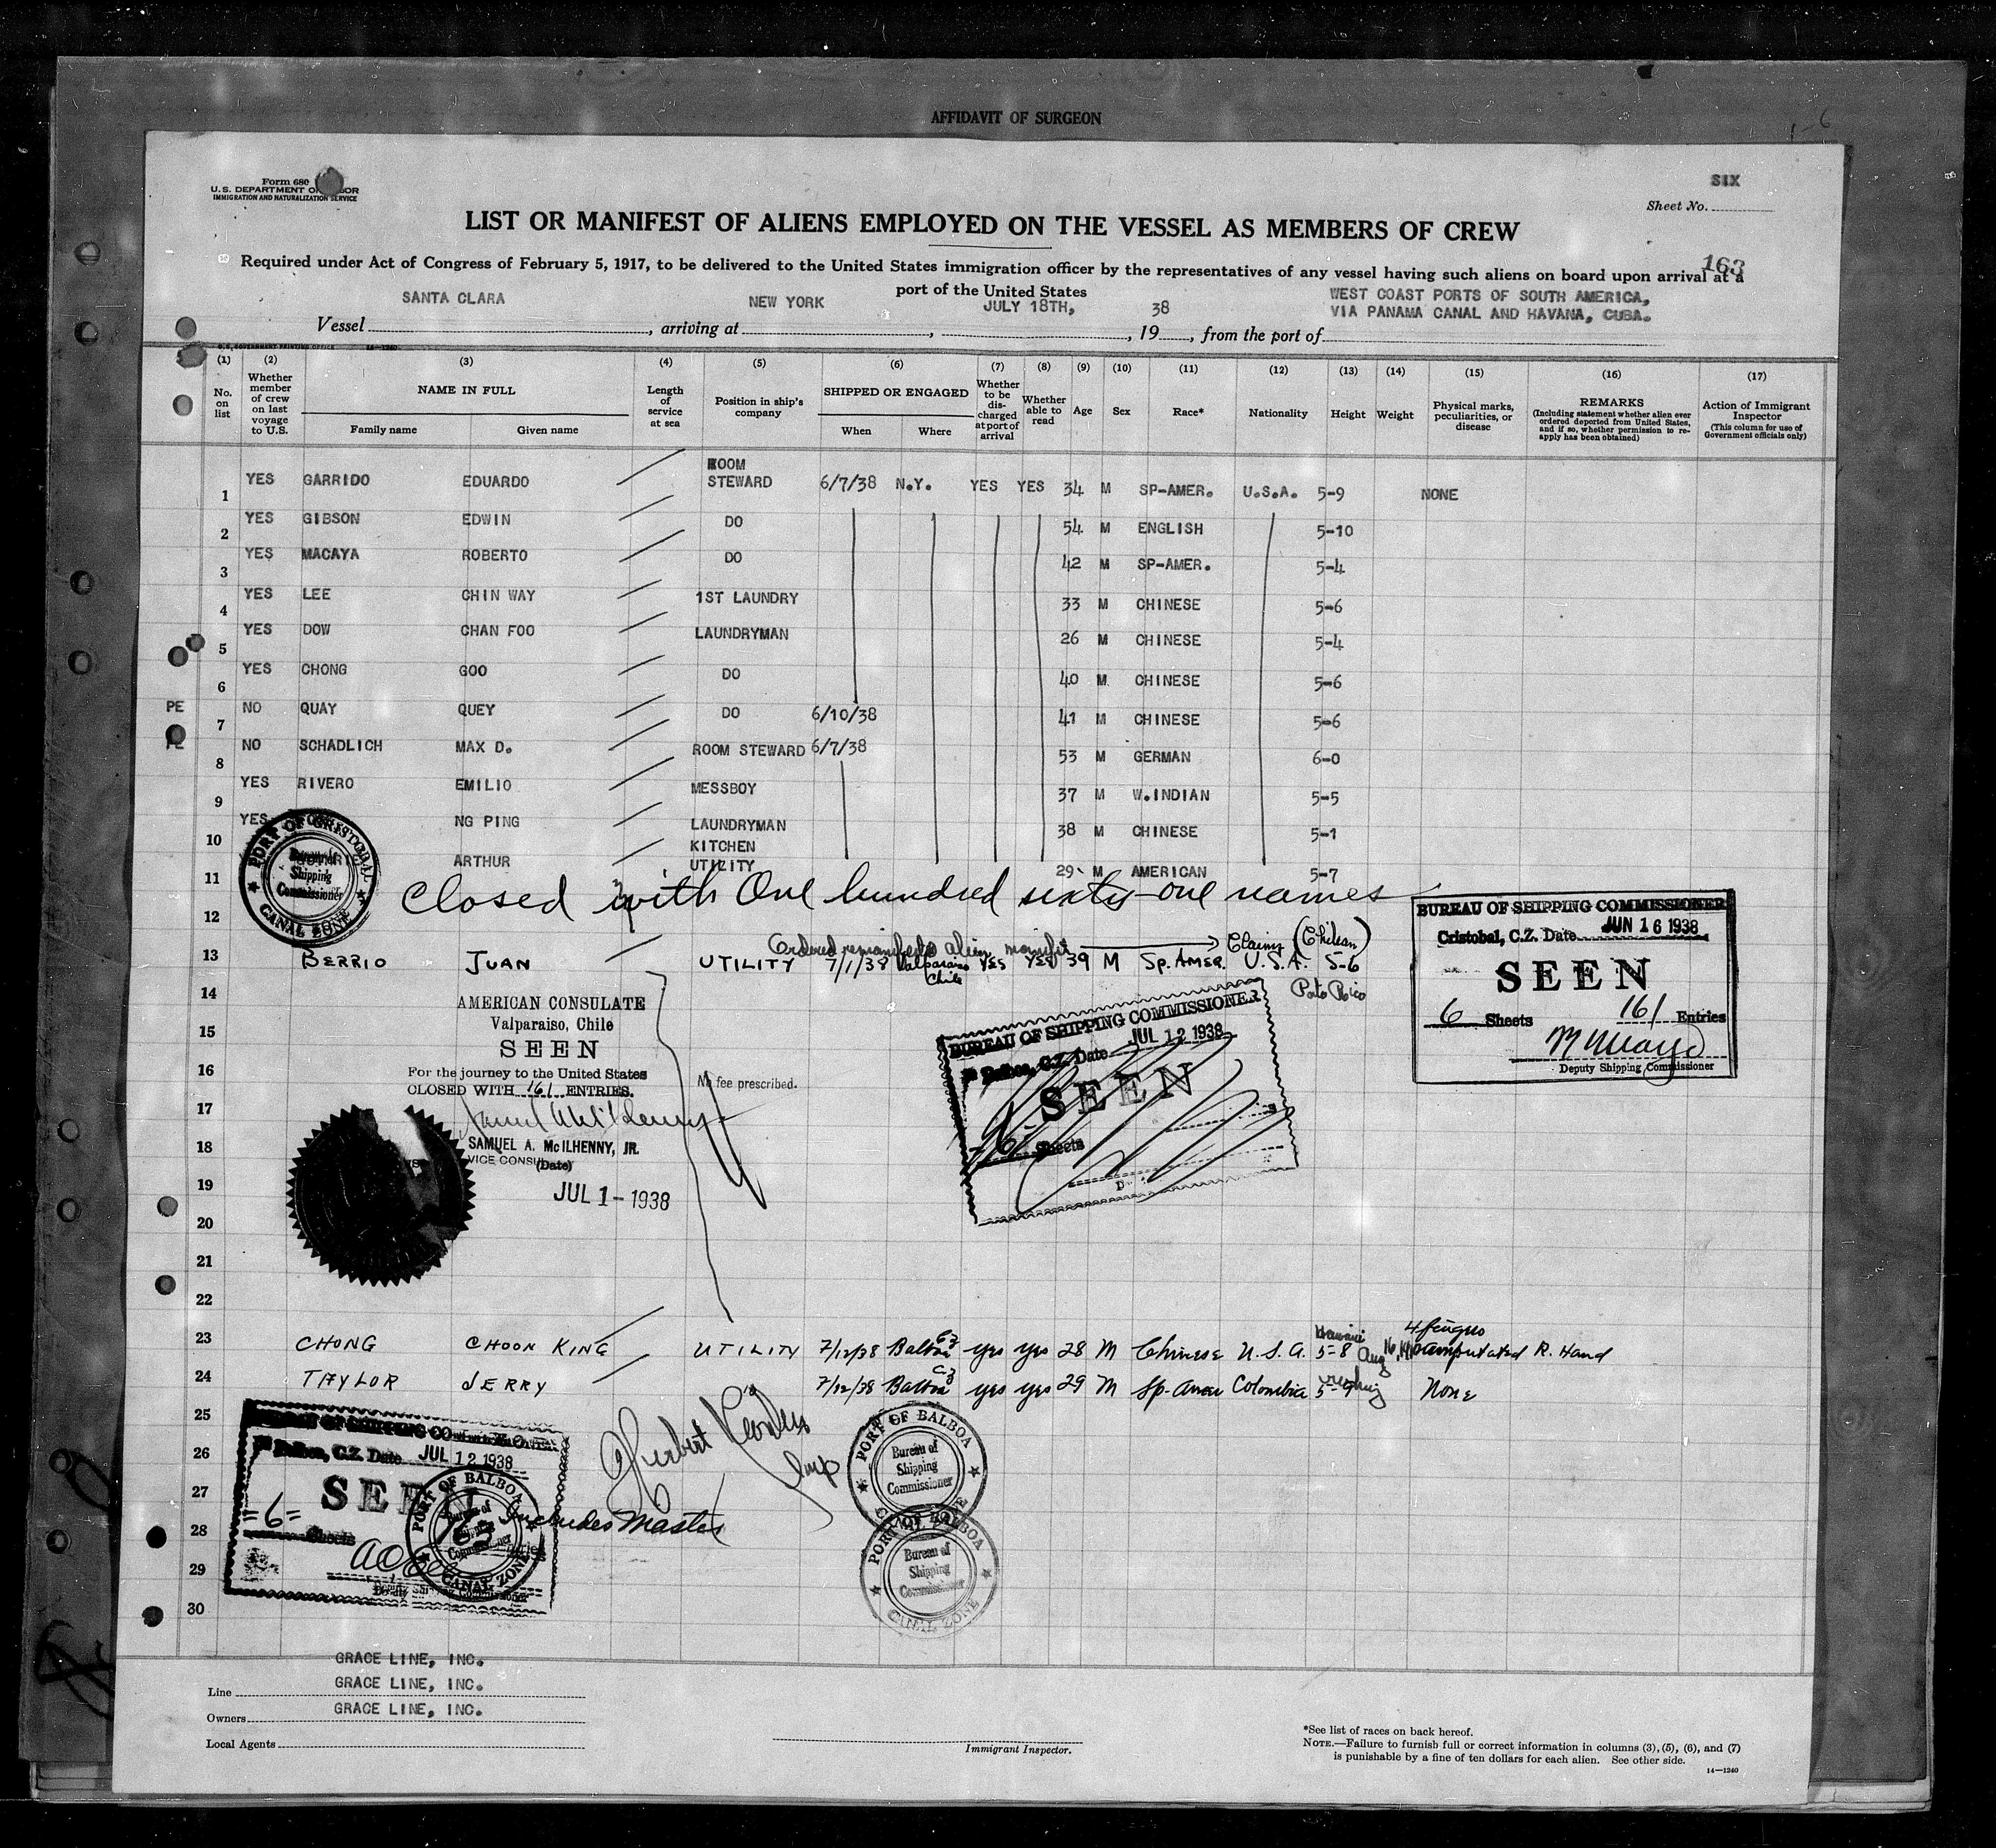 AFFIDAVIT OF SURGEON
1-6
Form 680
U.S. DEPARTMENT OF LABOR
IMMIGRATION AND NATURALIZATION SERVICE
SIX
Sheet No.
LIST OR MANIFEST OF ALIENS EMPLOYED ON THE VESSEL AS MEMBERS OF CREW
163
Required under Act of Congress of February 5, 1917, to be delivered to the United States immigration officer by the representatives of any vessel having such aliens on board upon arrival at a
port of the United States
Vessel SANTA CLARA, arriving at NEW YORK, JULY 18TH, 1938, from the port of WEST COAST PORTS OF SOUTH AMERICA,
VIA PANAMA CANAL AND HAVANA, CUBA.
U.S. GOVERNMENT PRINTING OFFICE 14—1240
(1) (2) (3) (4) (5) (6) (7) (8) (9) (10) (11) (12) (13) (14) (15) (16) (17)
No. on list
Whether member of crew on last voyage to U.S.
NAME IN FULL
Family name Given name
Length of service at sea
Position in ship's company
SHIPPED OR ENGAGED
When Where
Whether to be discharged at port of arrival
Whether able to read
Age
Sex
Race*
Nationality
Height
Weight
Physical marks, peculiarities, or disease
REMARKS
(Including statement whether alien ever ordered deported from United States, and if so, whether permission to reapply has been obtained)
Action of Immigrant Inspector
(This column for use of Government officials only)
1 YES GARRIDO EDUARDO ROOM STEWARD 6/7/38 N.Y. YES YES 34 M SP-AMER. U.S.A. 5-9 NONE
2 YES GIBSON EDWIN DO 54 M ENGLISH 5-10
3 YES MACAYA ROBERTO DO 42 M SP-AMER. 5-4
4 YES LEE CHIN WAY 1ST LAUNDRY 33 M CHINESE 5-6
5 YES DOW CHAN FOO LAUNDRYMAN 26 M CHINESE 5-4
6 YES CHONG GOO DO 40 M CHINESE 5-6
PE 7 NO QUAY QUEY DO 6/10/38 41 M CHINESE 5-6
PE 8 NO SCHADLICH MAX D. ROOM STEWARD 6/7/38 53 M GERMAN 6-0
9 YES RIVERO EMILIO MESSBOY 37 M W.INDIAN 5-5
10 YES NG PING LAUNDRYMAN 38 M CHINESE 5-1
11 ARTHUR KITCHEN UTILITY 29 M AMERICAN 5-7
PORT OF CRISTOBAL
Bureau of
Shipping
Commissioner
CANAL ZONE
12 Closed with One hundred sixty-one names
BUREAU OF SHIPPING COMMISSIONER
Cristobal, C.Z. Date JUN 16 1938
SEEN
6 Sheets 161 Entries
Deputy Shipping Commissioner
Ordered remanifested alien manifest Claims (Chilean)
13 BERRIO JUAN UTILITY 7/1/38 Valparaiso Chile YES YES 39 M Sp. AMER. U.S.A. 5-6
Porto Rico
14
AMERICAN CONSULATE
Valparaiso, Chile
15
SEEN
16
For the journey to the United States
CLOSED WITH 161 ENTRIES.
No fee prescribed.
17
SAMUEL A. McILHENNY, JR.
18
VICE CONSUL
(Date)
19
JUL 1 - 1938
BUREAU OF SHIPPING COMMISSIONER
Balboa, C.Z. Date JUL 12 1938
SEEN
6 Sheets
20
21
22
23 CHONG CHOON KING UTILITY 7/12/38 Balboa CZ yes yes 28 M Chinese U.S.A. 5-8 Hawaii Aug 4 fingers amputated R. Hand
24 TAYLOR JERRY 7/12/38 Balboa CZ yes yes 29 M Sp-Amer Colombia 5-9 None
25
BUREAU OF SHIPPING COMMISSIONER
Balboa, C.Z. Date JUL 12 1938
26
SEEN
27
=6= Sheets
28
163 Includes Master
29
Deputy Shipping Commissioner
30
PORT OF BALBOA
Bureau of
Shipping
Commissioner
CANAL ZONE
Herbert
PORT OF BALBOA
Bureau of
Shipping
Commissioner
PORT OF BALBOA
Bureau of
Shipping
Commissioner
CANAL ZONE
GRACE LINE, INC.
Line GRACE LINE, INC.
Owners GRACE LINE, INC.
Local Agents
Immigrant Inspector.
*See list of races on back hereof.
NOTE.—Failure to furnish full or correct information in columns (3), (5), (6), and (7)
is punishable by a fine of ten dollars for each alien. See other side.
14—1240